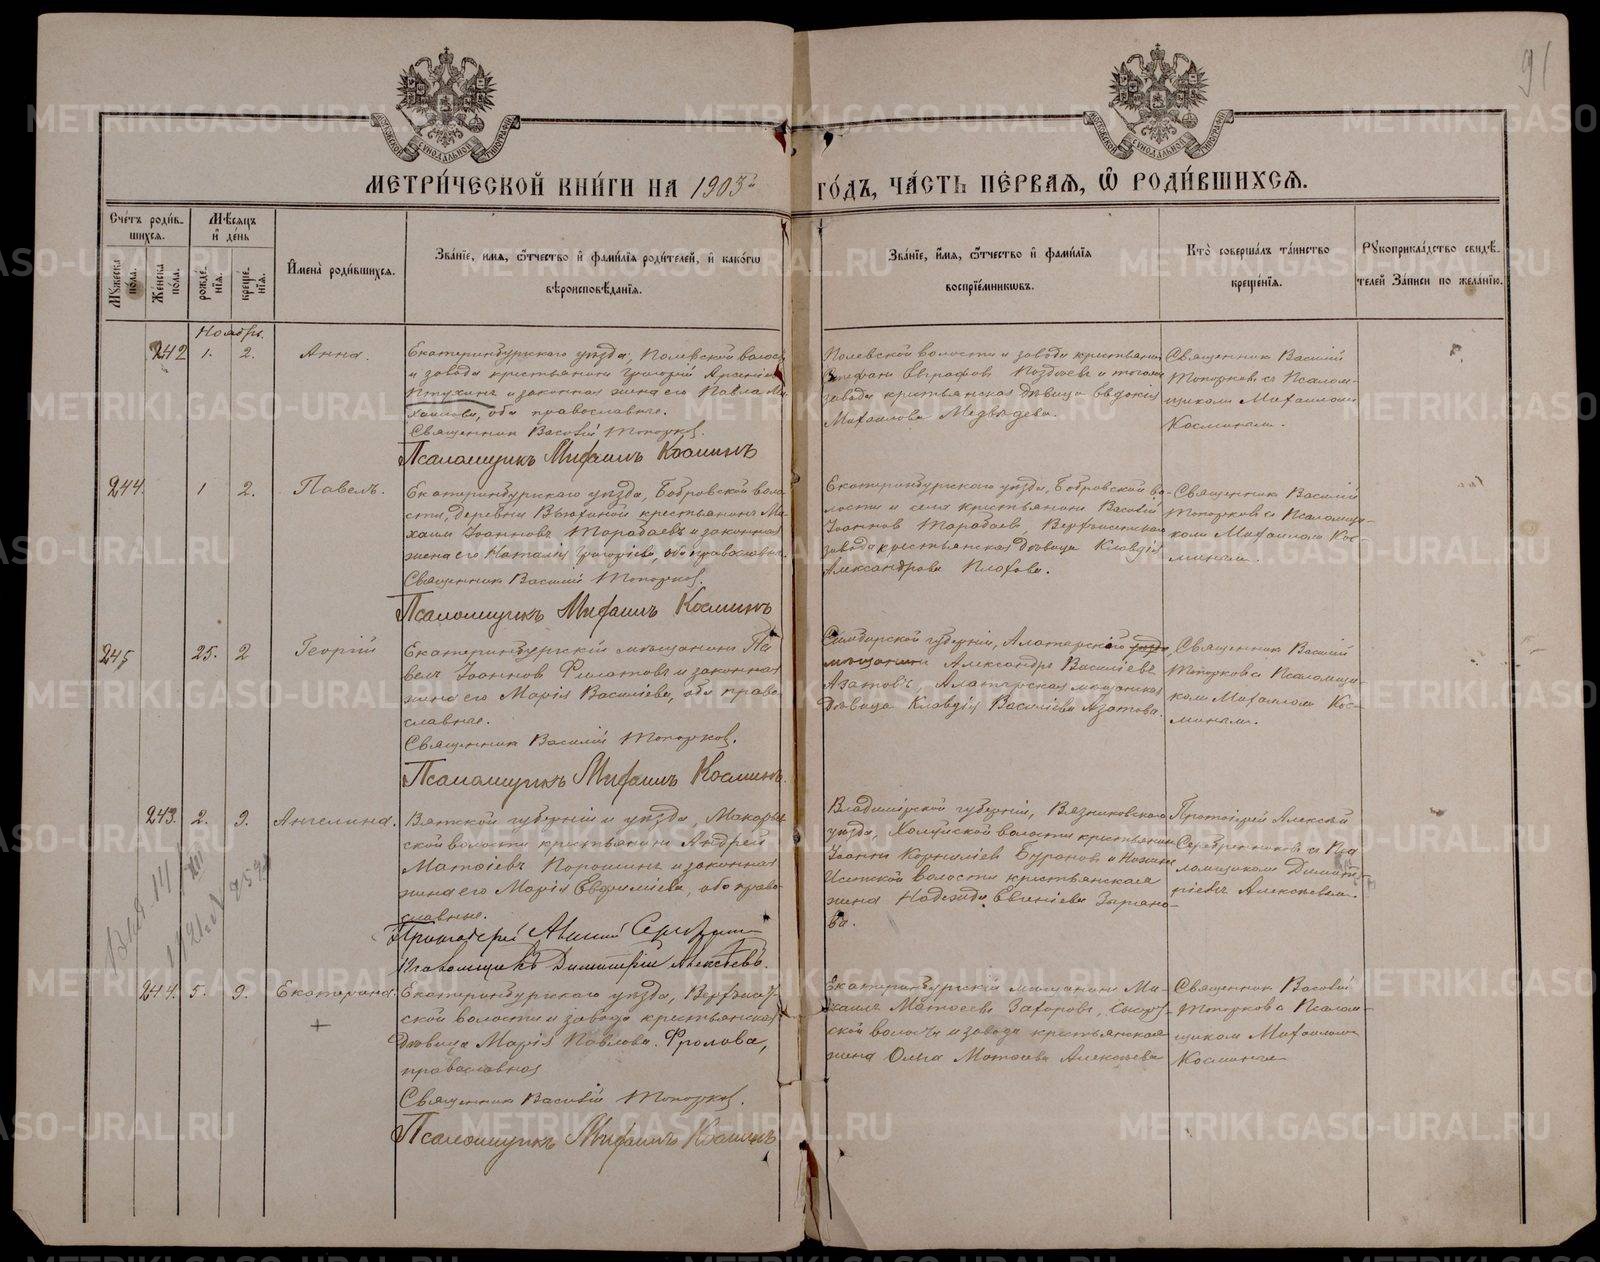 91
МЕТРИ́ЧЕСКОЙ КНИ́ГИ НА 1903й ГО́ДЪ, ЧА́СТЬ ПЕ́РВАЯ, Ѽ РОДИ́ВШИХСЯ.
Сче́тъ роди́в-
шихся.
Му́жеска по́ла.
Же́нска по́ла.
Мѣ́сяцъ и де́нь
рожде́-нїя.
креще́-нїя.
И҆мена̀ роди́вшихся.
Зва́нїе, и҆́мя, ѻ҆́тчество и҆ фами́лїя роди́телей, и҆ како́гѡ
вѣроисповѣ́данїя.
Зва́нїе, и҆́мя, ѻ҆́тчество и҆ фами́лїя
воспрїе́мникѡвъ.
Кто̀ соверша́лъ та́инство
креще́нїя.
Рукоприкла́дство свидѣ́-
телей за́писи по жела́нїю.
Ноябрь.
242 1. 2. Анна.
Екатеринбургскаго уѣзда, Полевской волости
и завода крестьянинъ Григорій Арсеніевъ
Птухинъ и законная жена его Павла Ми-
хаилова, оба православные.
Священникъ Василій Топорковъ.
Псаломщикъ Михаилъ Косминъ
Полевской волости и завода крестьянинъ
Стефанъ Евграфовъ Поздѣевъ и тогоже
завода крестьянская дѣвица Евдокія
Михаилова Медвѣдева.
Священникъ Василій
Топорковъ съ Псалом-
щикомъ Михаиломъ
Косминымъ.
244. 1 2. Павелъ.
Екатеринбургскаго уѣзда, Бобровской воло-
сти, деревни Вьюхиной крестьянинъ Ми-
хаилъ Іоанновъ Тарабаевъ и законная
жена его Наталія Григоріева, оба православные.
Священникъ Василій Топорковъ.
Псаломщикъ Михаилъ Косминъ
Екатеринбургскаго уѣзда, Бобровской во-
лости и села крестьянинъ Василій
Іоанновъ Тарабаевъ, Верхъисетскаго
завода крестьянская дѣвица Клавдія
Александрова Плохова.
Священникъ Василій
Топорковъ съ Псаломщи-
комъ Михаиломъ Кос-
минымъ.
245 25. 2 Георгій
Екатеринбургскій мѣщанинъ Па-
велъ Іоанновъ Филатовъ и законная
жена его Марія Василіева, оба право-
славные.
Священникъ Василій Топорковъ.
Псаломщикъ Михаилъ Косминъ.
Симбирской губерніи, Алатырскій
мѣщанинъ Александръ Василіевъ
Азатовъ, Алатырская мѣщанская
дѣвица Клавдія Василіева Азатова.
Священникъ Василій
Топорковъ съ Псаломщи-
комъ Михаиломъ Кос-
минымъ.
243. 2. 9. Ангелина.
Вятской губерніи и уѣзда, Макарьев-
ской волости крестьянинъ Андрей
Матѳіевъ Порошинъ и законная
жена его Марія Евфиміева, оба право-
славные.
Протоіерей Алексій
Псаломщикъ Димитрій Алексѣевъ.
Владимірской губерніи, Вязниковскаго
уѣзда, Холуйской волости крестьянинъ
Іоаннъ Корниліевъ Бурановъ и Нижне
Исетской волости крестьянская
жена Надежда Евгеніева Зырано-
ва.
Протоіерей Алексій
Серебренниковъ съ Пса-
ломщикомъ Димит-
ріевъ Алексѣевымъ.
244. 5. 9. Екатерина.
Екатеринбургскаго уѣзда, Верхъисет-
ской волости и завода крестьянская
дѣвица Марія Павлова Фролова,
православная
Священникъ Василій Топорковъ.
Псаломщикъ Михаилъ Косминъ
Екатеринбургскій мѣщанинъ Ми-
хаилъ Матѳіевъ Захаровъ, Сысерт-
ской волости и завода крестьянская
жена Ольга Матѳіева Алексѣева
Священникъ Василій
Топорковъ съ Псалом-
щикомъ Михаиломъ
Косминымъ
METRIKI.GASO-URAL.RU